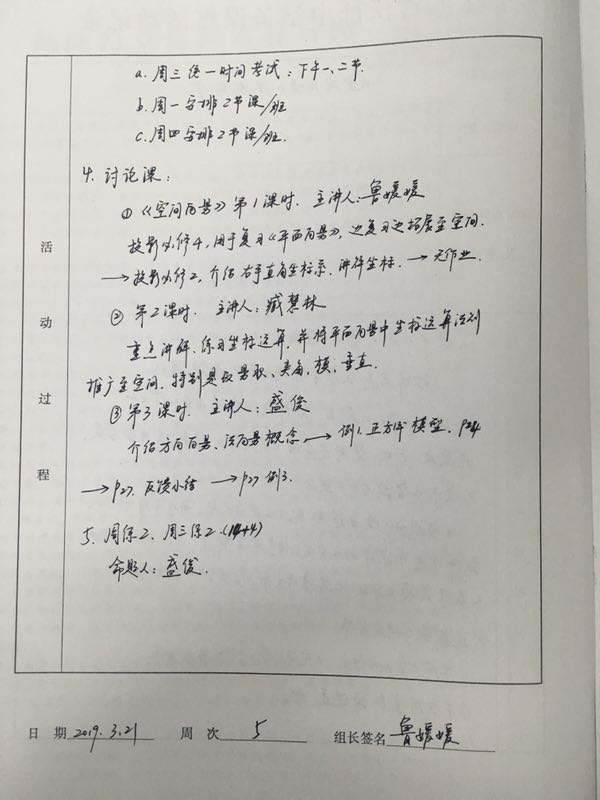 a. 周三统一时间考试：下午一、二节.
b. 周一安排2节课/班
c. 周四安排2节课/班.
4. 讨论课：
①《空间向量》第1课时. 主讲人：鲁媛媛
投影必修4，用于复习《平面向量》，边复习边拓展至空间.
→投影必修2，介绍右手直角坐标系，讲解坐标. →无作业.
② 第2课时. 主讲人：臧慧林
重点讲解、练习坐标运算，并将平面向量中坐标运算法则
推广至空间. 特别是数量积、夹角、模、垂直.
③ 第3课时. 主讲人：盛俊
介绍方向向量、法向量概念 → 例1. 正方体模型. P24
→P27. 反馈小结 →P27 例3.
5. 周练2、周三练2.(14+4)
命题人：盛俊.
活动过程
日 期 2019.3.21 周 次 5 组长签名 鲁媛媛